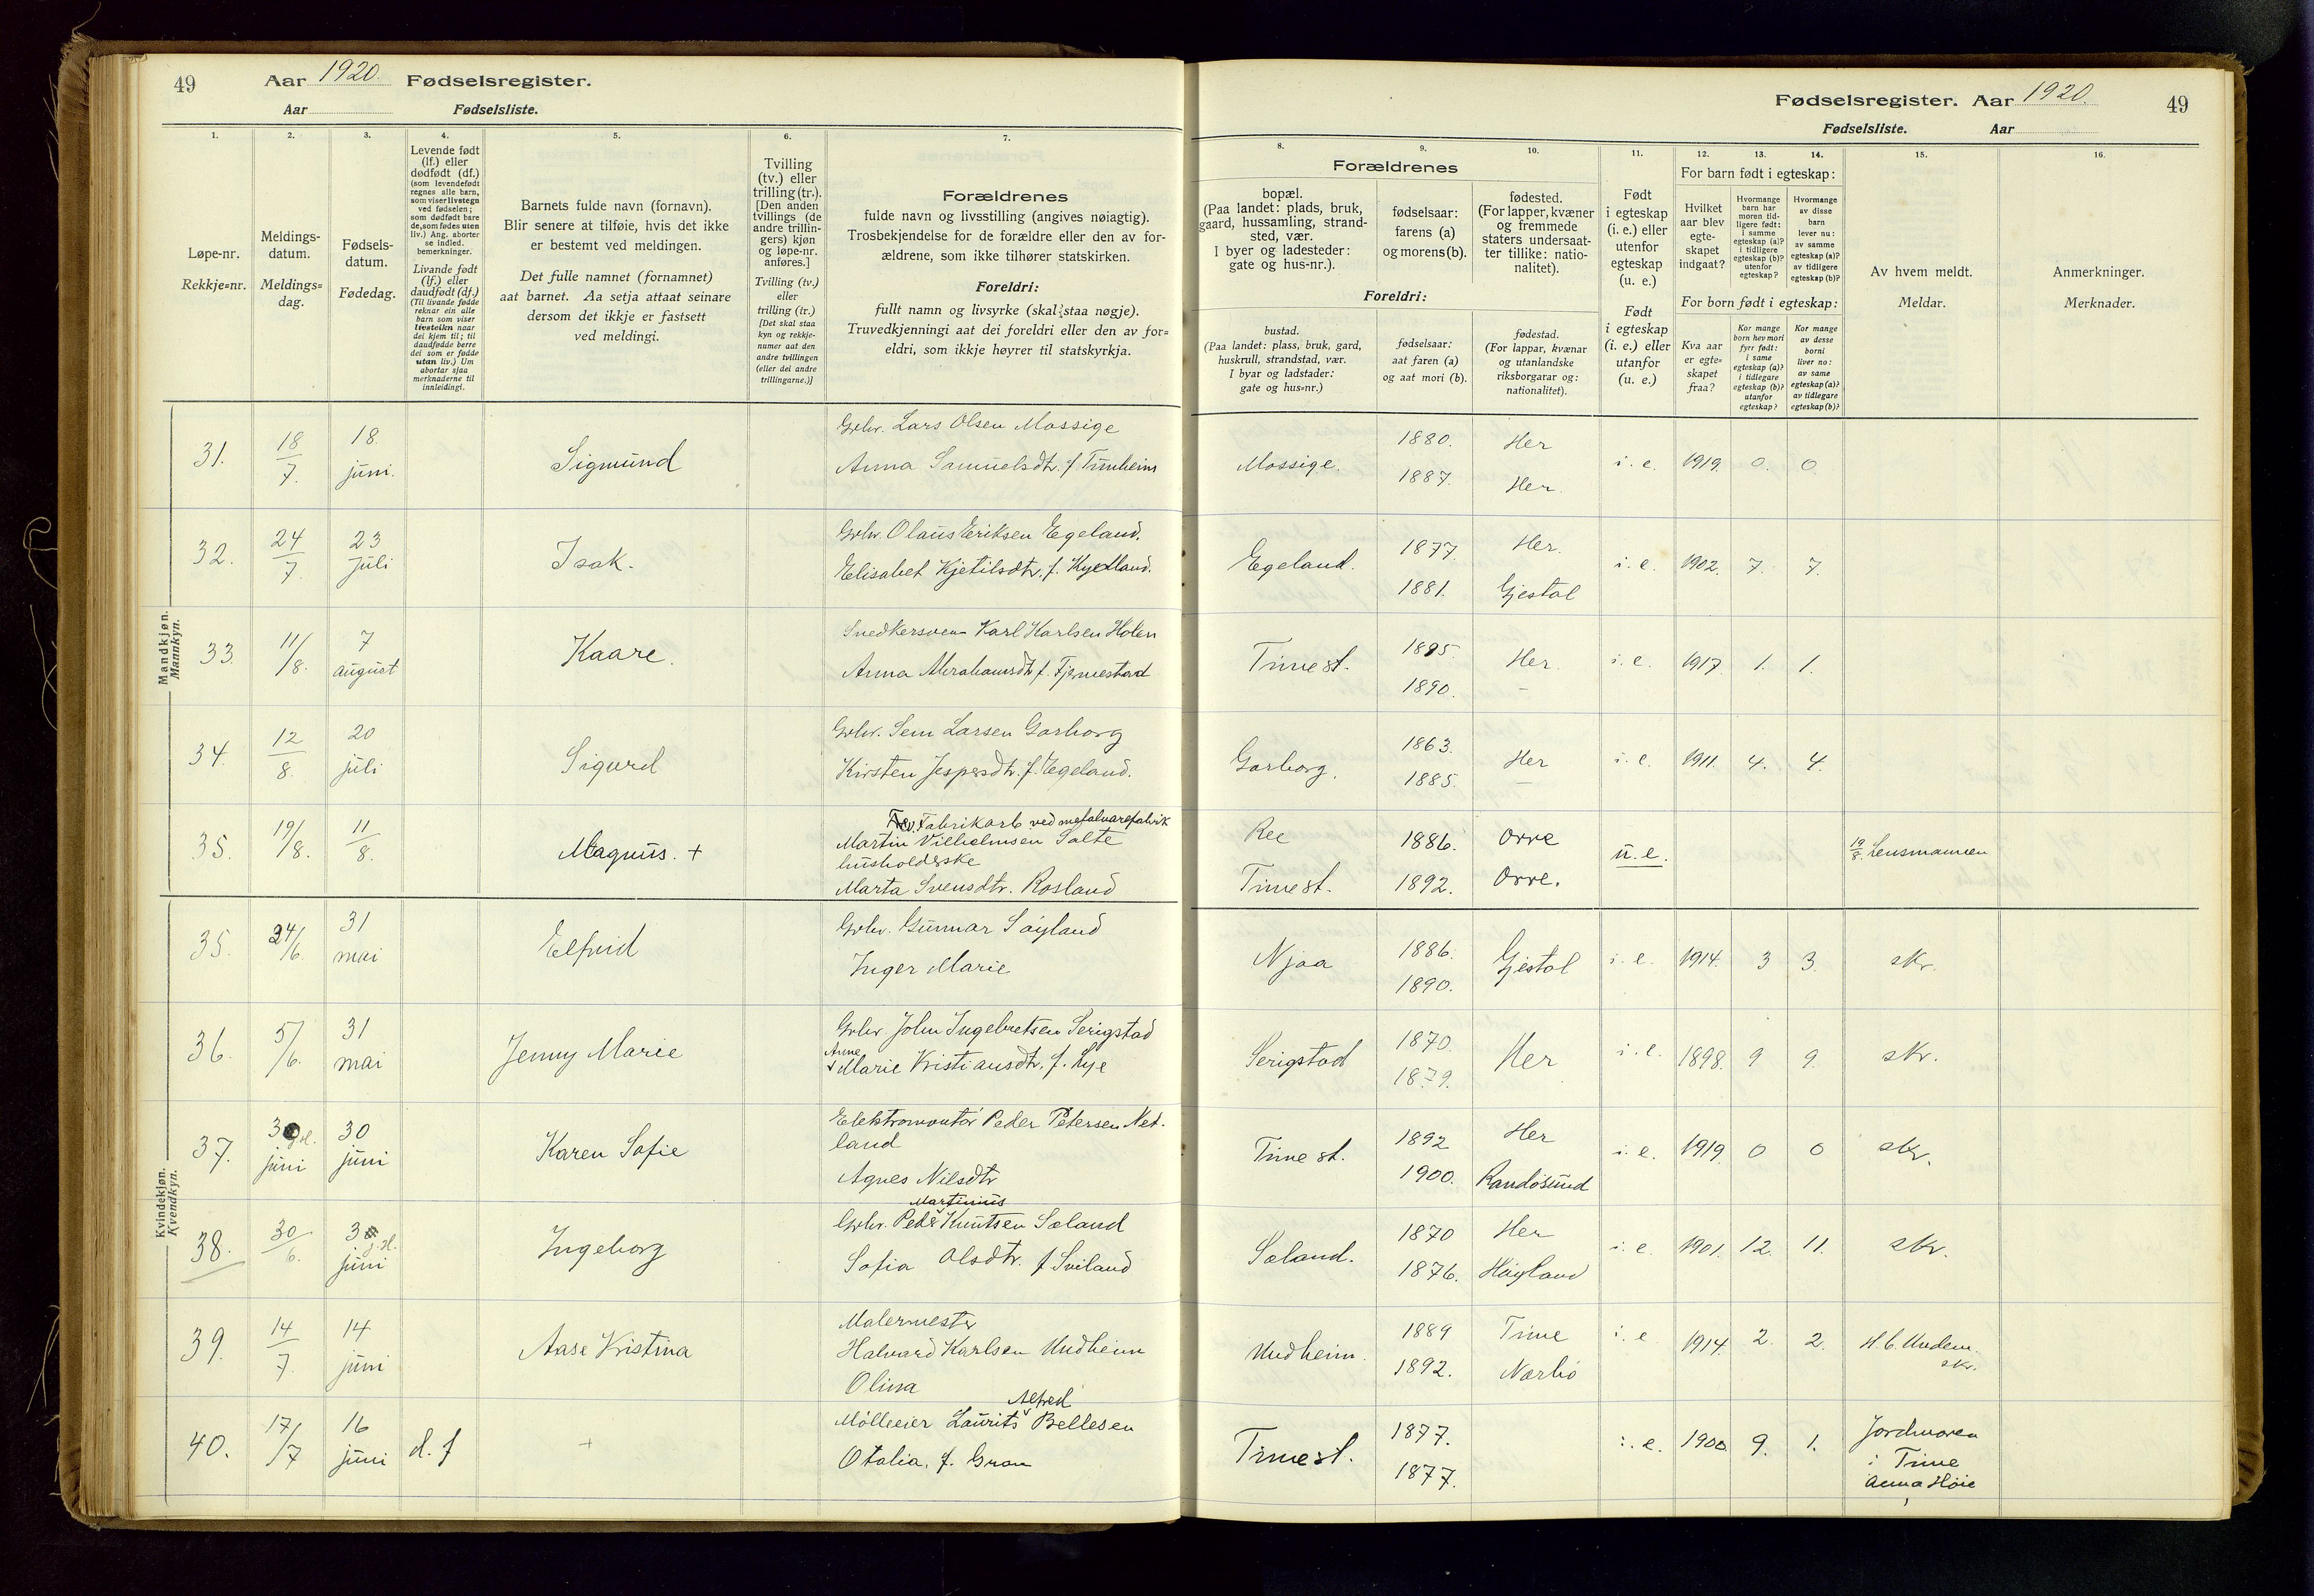 49 Aar 1920. Fødselsregister.
Aar Fødselsliste.
Fødselsregister. Aar 1920. 49
Fødselsliste. Aar
1. 2. 3. 4. 5. 6. 7.
8. 9. 10. 11. 12. 13. 14. 15. 16.
Løpe-nr.
Rekkje=nr.
Meldings-
datum.
Meldings=
dag.
Fødsels-
datum.
Fødedag.
Levende født
(lf.) eller
dødfødt (df.)
(som levendefødt
regnes alle barn,
som viser livstegn
ved fødselen;
som dødfødt bare
de, som fødes uten
liv.) Ang. aborter
se indled.
bemerkninger.
Livande født
(lf.) eller
daudfødt (df.)
(Til livande fødde
reknar ein alle
barn som viser
livsteikn naar
dei kjem til; til
daudfødde berre
dei som er fødde
utan liv.) Um
abortar sjaa
merknaderne til
innleidingi.
Barnets fulde navn (fornavn).
Blir senere at tilføie, hvis det ikke
er bestemt ved meldingen.
Det fulle namnet (fornamnet)
aat barnet. Aa setja attaat seinare
dersom det ikkje er fastsett
ved meldingi.
Tvilling
(tv.) eller
trilling (tr.).
[Den anden
tvillings (de
andre trillin-
gers) kjøn
og løpe-nr.
anføres.]
Tvilling (tv.)
eller
trilling (tr.)
[Det skal staa
kyn og rekkje-
numer aat den
andre tvillingen
(eller dei andre
trillingarne.)]
Forældrenes
fulde navn og livsstilling (angives nøiagtig).
Trosbekjendelse for de forældre eller den av for-
ældrene, som ikke tilhører statskirken.
Foreldri:
fullt namn og livsyrke (skal staa nøgje).
Truvedkjenningi aat dei foreldri eller den av for=
eldri, som ikkje høyrer til statskyrkja.
Forældrenes
bopæl.
(Paa landet: plads, bruk,
gaard, hussamling, strand-
sted, vær.
I byer og ladesteder:
gate og hus-nr.).
fødselsaar:
farens (a)
og morens (b).
fødested.
(For lapper, kvæner
og fremmede
staters undersaat-
ter tillike: natio-
nalitet).
Foreldri:
bustad.
(Paa landet: plass, bruk, gard,
huskrull, strandstad, vær.
I byar og ladstader:
gate og hus=nr.)
fødselsaar:
aat faren (a)
og aat mori (b).
fødestad.
(For lappar, kvænar
og utanlandske
riksborgarar og:
nationalitet).
Født
i egteskap
(i. e.) eller
utenfor
egteskap
(u. e.)
Født
i egteskap
(i. e.) eller
utanfor
(u. e.)
For barn født i egteskap:
Hvilket
aar blev
egte-
skapet
indgaat?
Hvormange
barn har
moren tid-
ligere født:
i samme
egteskap (a)?
i tidligere
egteskap (b)?
utenfor
egteskap?
Hvormange
av disse
barn
lever nu:
av samme
egteskap (a)?
av tidligere
egteskap (b)?
For born født i egteskap:
Kva aar
er egte=
skapet
fraa?
Kor mange
born hev mori
fyrr født:
i same
egteskap (a)?
i tidlegare
egteskap (b)?
utanfor
egteskap?
Kor mange
av desse
borni
liver no:
av same
egteskap (a)?
av tidlegare
egteskap (b)?
Av hvem meldt.
Meldar.
Anmerkninger.
Merknader.
Mandkjøn.
Mannkyn.
31. 18/7. 18. juni. Sigmund
Grbr. Lars Olsen Mossige
Anna Samuelsdtr. f. Tunheim
Mossige. 1880. 1887. Her Her. i. e. 1919. 0. 0.
32. 24/7. 23 juli Isak.
Grbr. Olaus Eriksen Egeland.
Elisabet Kjetilsdtr. f. Kydland.
Egeland. 1877. 1881. Her. Gjestal i. e. 1902. 7. 7.
33. 11/8. 7 august Kaare.
Snedkersvenn Karl Karlsen Holen
Anna Abrahamsdtr f. Fjermestad
Time st. 1895. 1890. Her. – i. e. 1917. 1. 1.
34. 12/8. 20 juli Sigurd
Grbr. Sem Larsen Garborg
Kirsten Jespersdtr. f. Egeland.
Garborg. 1863. 1885. Her – i. e. 1911. 4. 4.
35. 19/8. 11/8. Magnus. +
Fabrikarb ved metalvarefabrik
Martin Vilhelmsen Salte
husholderske
Marta Svensdtr. Rosland
Ree Time st. 1886. 1892. Orre Orre. u. e. 19/8. Lensmannen
Kvindekjøn.
Kvendkyn.
35. 24/6. 31 mai Elfrid
Grbr. Gunnar Søyland
Inger Marie
Njaa 1886. 1890. Gjestal i. e. 1914. 3 3. skr.
36. 5/6. 31 mai Jenny Marie
Grbr. John Ingebretsen Serigstad
Anne
Marie Kristiansdtr. f. Lye
Serigstad 1870. 1879. Her i. e. 1898. 9 9. skr.
37. 30 juni 30 juni Karen Sofie
Elektromontør Peder Petersen Net-
land
Agnes Nilsdtr
Time st. 1892 1900. Her Randøsund i. e. 1919. 0 0 skr.
38. 30/6. 30 juni Ingeborg
Martinius
Grbr. Peder Knutsen Sæland
Sofia Olsdtr. f Sviland
Sæland. 1870 1876. Her Høyland i. e. 1901. 12. 11. skr.
39. 14/7. 14 juni Aase Kristina
Malermester
Halvard Karlsen Undheim
Olina
Undheim. 1889 1892. Time Nærbø i. e. 1914. 2. 2. H. C. Undem. skr.
40. 17/7 16 juni d. f +
Alfred
Mølleeier Laurits Bellesen
Otalia, f. Gran
Time st. 1877. 1877. i. e. 1900. 9. 1.
Jordmoren
i Time
Anna Høie